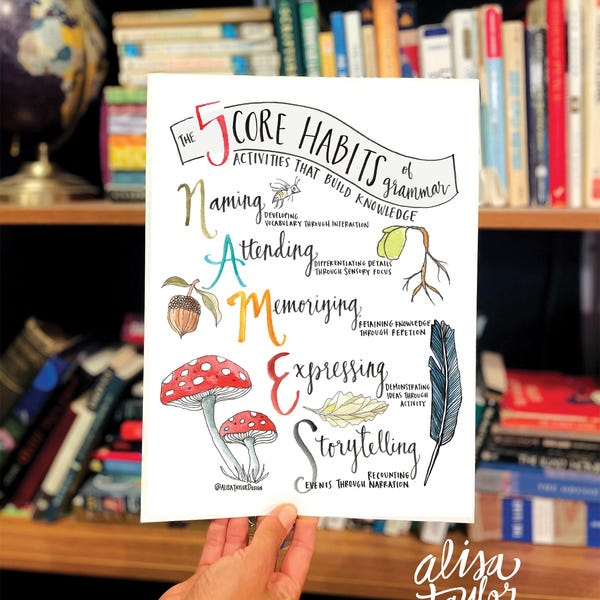 THE 5 CORE HABITS of grammar
ACTIVITIES THAT BUILD KNOWLEDGE
Naming
DEVELOPING
VOCABULARY THROUGH INTERACTION
Attending
DIFFERENTIATING DETAILS
THROUGH SENSORY FOCUS
Memorizing
RETAINING KNOWLEDGE
THROUGH REPETION
Expressing
DEMONSTRATING
IDEAS THROUGH
ACTIVITY
Storytelling
RECOUNTING
EVENTS THROUGH NARRATION
@ALISATAYLORDESIGN
alisa
taylor